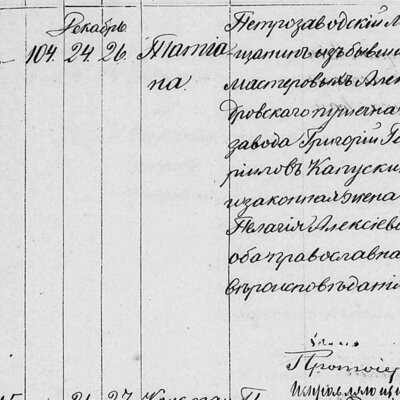 Декабрь
104. 24. 26. Татiа
на.
Петрозаводскiй М
щанинъ изъ бывши
мастеровыхъ Алек
дровскаго пушечна
завода Григорiй Га
рiиловъ Капуски
и законная жена
Пелагiя Алексiев
оба православна
вѣроисповѣданi
Протоiер
исправляющ